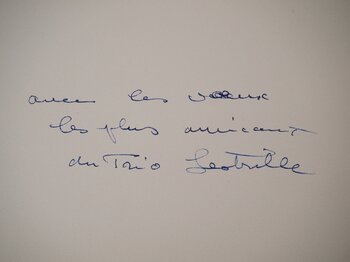 avec les vœux
les plus amicaux
du Trio